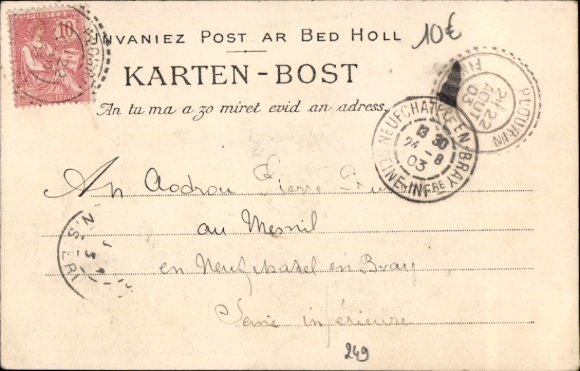 10
POSTES
10€
UNVANIEZ POST AR BED HOLL
KARTEN-BOST
An tu ma a zo miret evid an adress.
PLOURIN
2E 22 AOUT 03
NEUFCHATEL-EN-BRAY
13 30
24 - 8
03
SEINE-INFRE
An Aodrou Pierre
au Mesnil
en Neufchatel en Bray
Seine inférieure
249